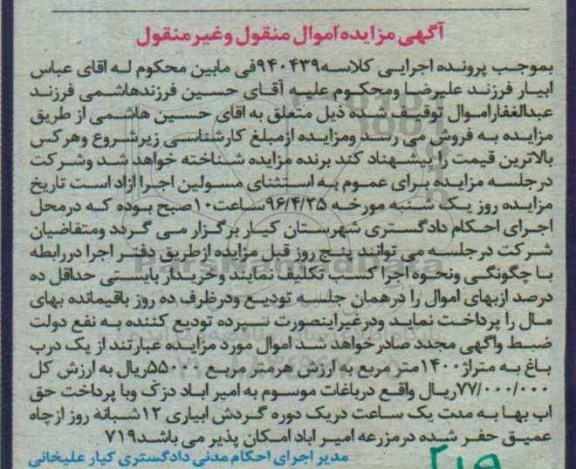 آگهی مزایده اموال منقول و غیر منقول
بموجب پرونده اجرایی کلاسه ۹۴۰۴۳۹ فی مابین محکوم له اقای عباس
ابیار فرزند علیرضا ومحکوم علیه آقای حسین فرزندهاشمی فرزند
عبدالغفاراموال توقیف شده ذیل متعلق به اقای حسین هاشمی از طریق
مزایده به فروش می رسد ومزایده ازمبلغ کارشناسی زیرشروع وهرکس
بالاترین قیمت را پیشنهاد کند برنده مزایده شناخته خواهد شد وشرکت
درجلسه مزایده برای عموم به استثنای مسولین اجرا ازاد است تاریخ
مزایده روز یک شنبه مورخه ۹۶/۴/۲۵ساعت۱۰صبح بوده که درمحل
اجرای احکام دادگستری شهرستان کیار برگزار می گردد ومتقاضیان
شرکت درجلسه می توانند پنج روز قبل مزایده ازطریق دفتر اجرا دررابطه
با چگونگی ونحوه اجرا کسب تکلیف نمایند وخریدار بایستی حداقل ده
درصد ازبهای اموال را درهمان جلسه تودیع ودرظرف ده روز باقیمانده بهای
مال را پرداخت نماید ودرغیراینصورت سپرده تودیع کننده به نفع دولت
ضبط واگهی مجدد صادرخواهد شد اموال مورد مزایده عبارتند از یک درب
باغ به متراژ۱۴۰۰متر مربع به ارزش هرمتر مربع ۵۵۰۰۰ریال به ارزش کل
۷۷/۰۰۰/۰۰۰ریال واقع درباغات موسوم به امیر اباد دزک وبا پرداخت حق
اب بها به مدت یک ساعت دریک دوره گردش ابیاری ۱۲شبانه روز ازچاه
عمیق حفر شده درمزرعه امیر اباد امکان پذیر می باشد۷۱۹
مدیر اجرای احکام مدنی دادگستری کیار علیخانی